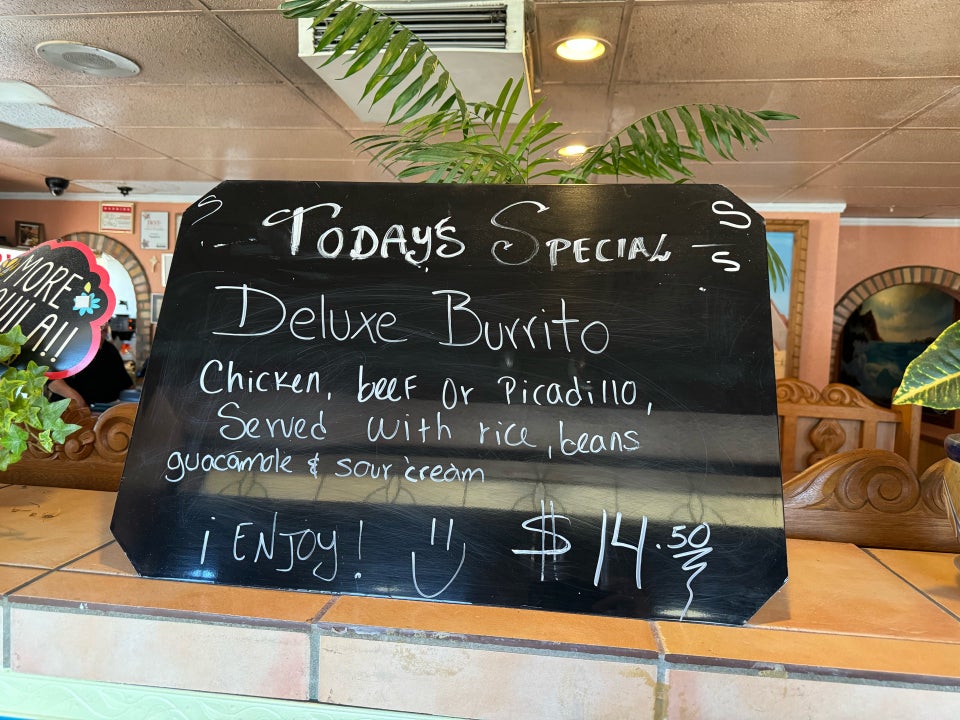 Today's Special
Deluxe Burrito
Chicken, beef or Picadillo,
Served with rice, beans
guacamole & sour cream
¡ENJOY! $14.50
MORE